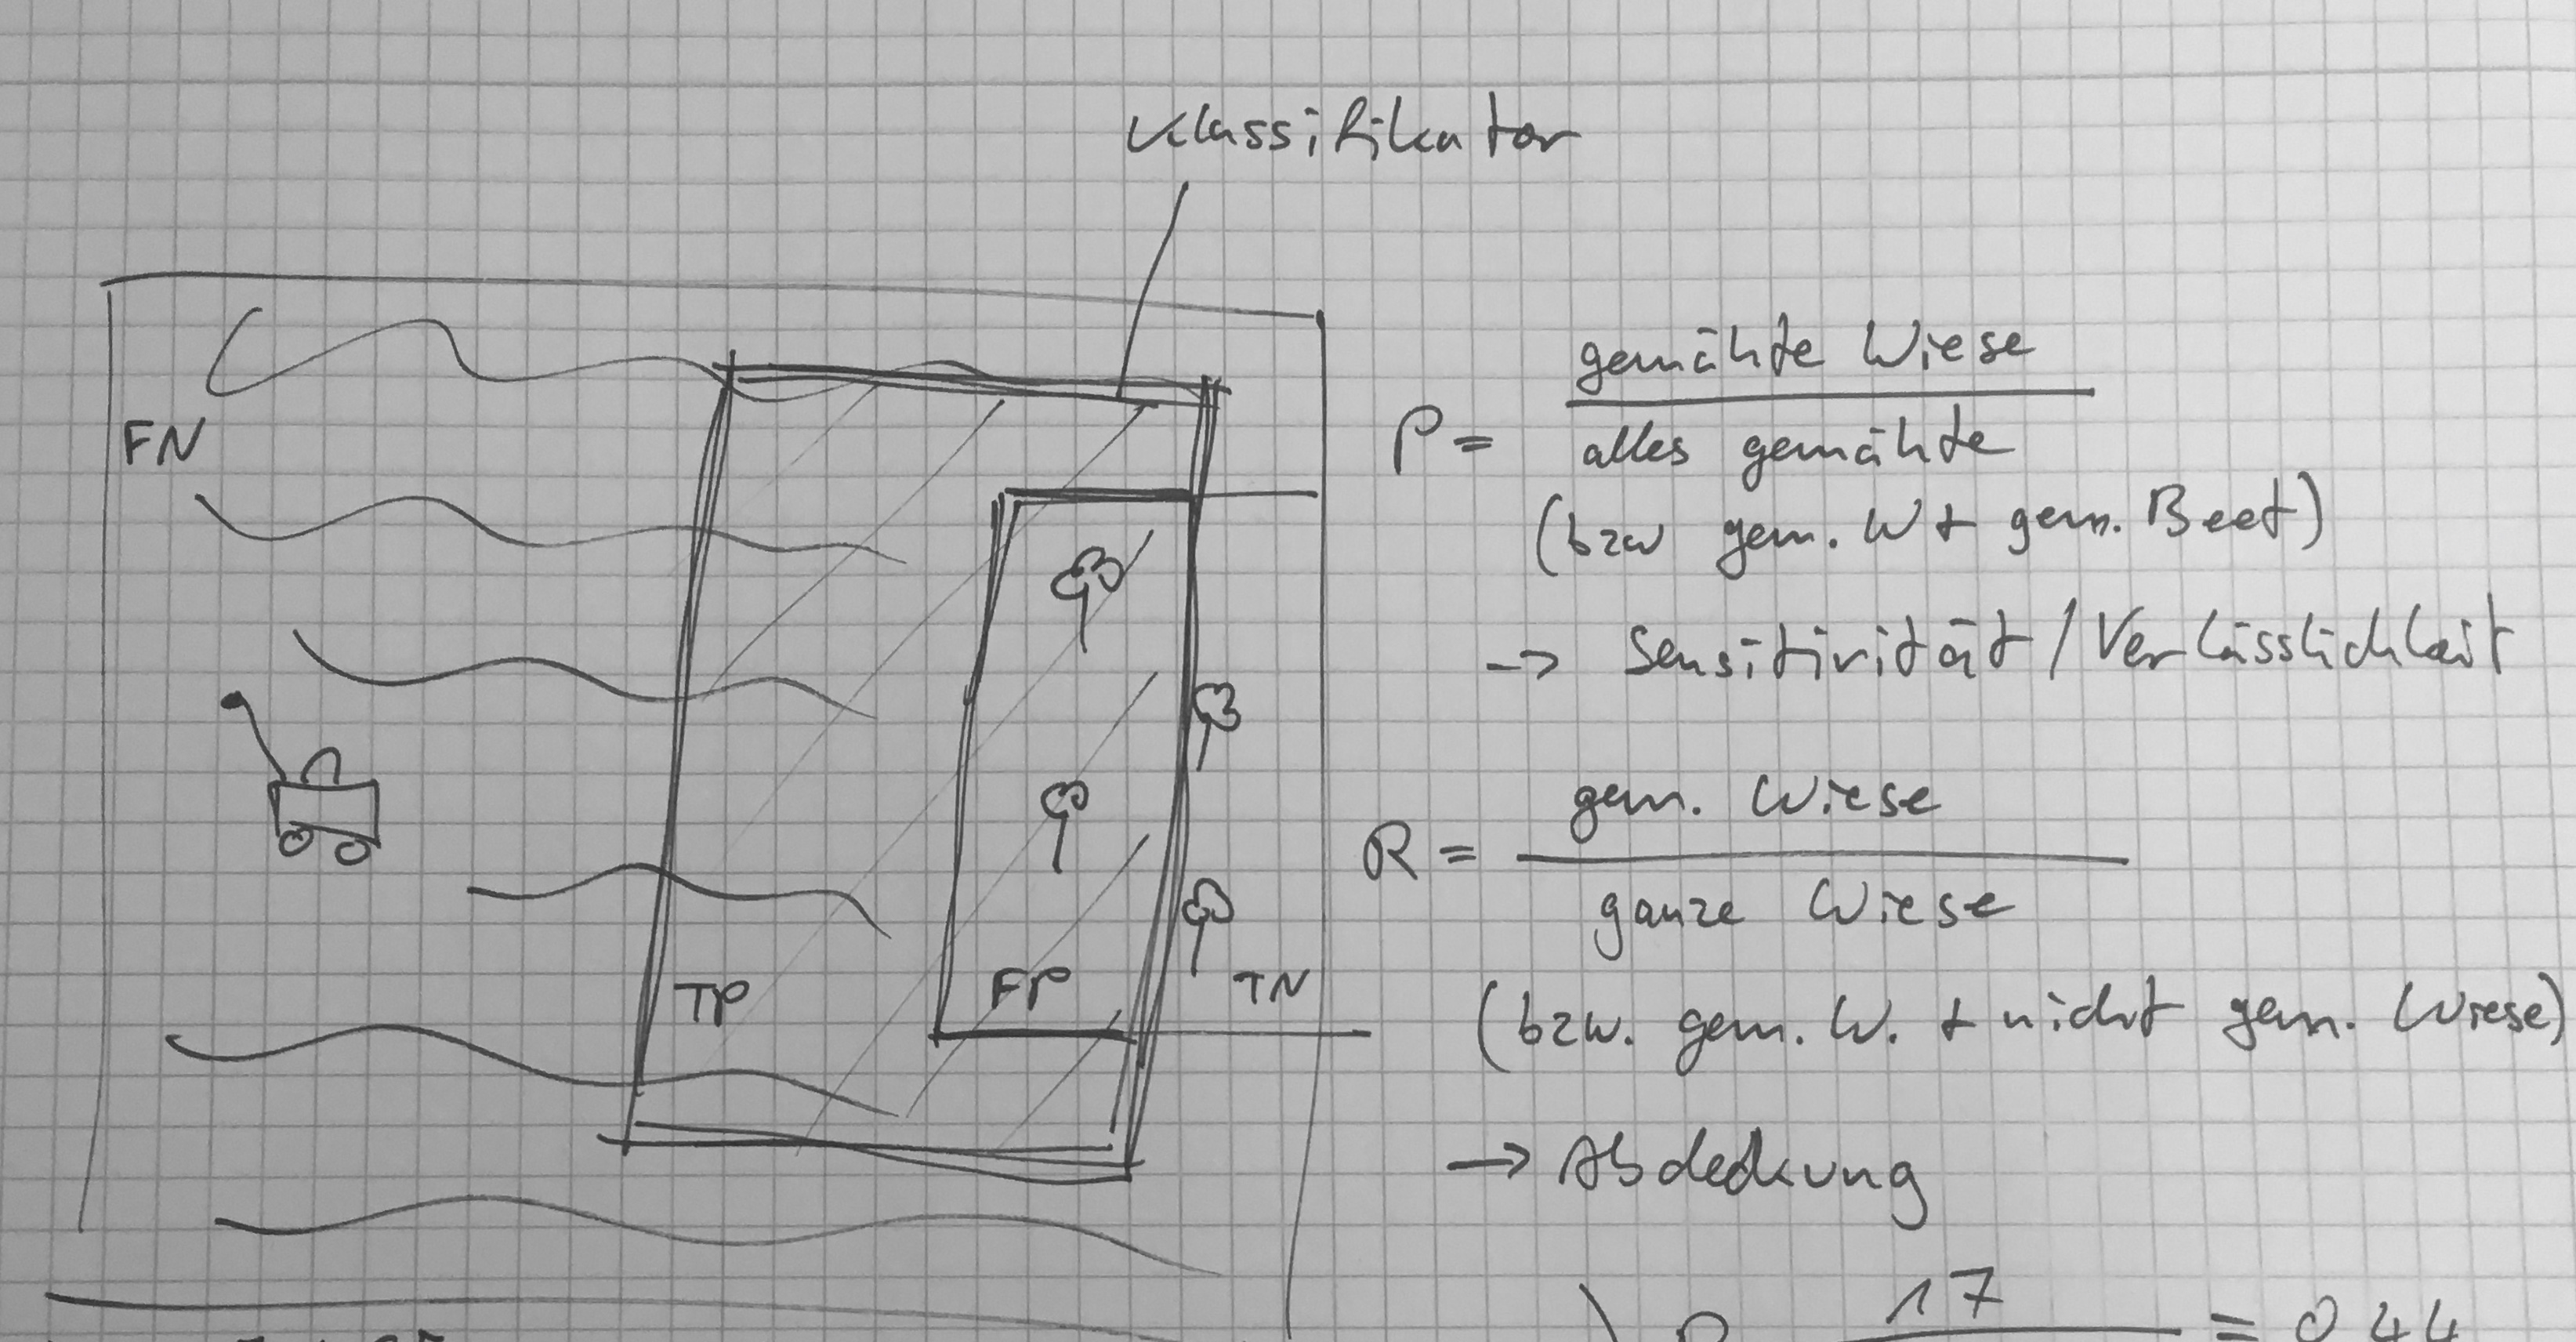 Klassifikator
FN
TP
FP
TN
P = gemähte Wiese
alles gemähte
(bzw gem. W + gem. Beet)
-> Sensitivität / Verlässlichkeit
R = gem. Wiese
ganze Wiese
(bzw. gem. W. + nicht gem. Wiese)
-> Abdeckung
17
= 0 44